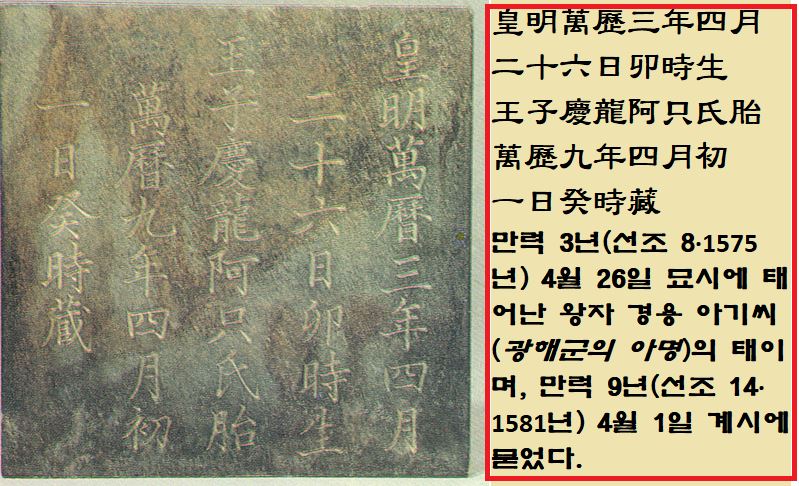 皇明萬曆三年四月
二十六日卯時生
王子慶龍阿只氏胎
萬曆九年四月初
一日癸時藏
皇明萬歷三年四月
二十六日卯時生
王子慶龍阿只氏胎
萬歷九年四月初
一日癸時藏
만력 3년(선조 8·1575
년) 4월 26일 묘시에 태
어난 왕자 경용 아기씨
(광해군의 아명)의 태이
며, 만력 9년(선조 14·
1581년) 4월 1일 계시에
묻었다.